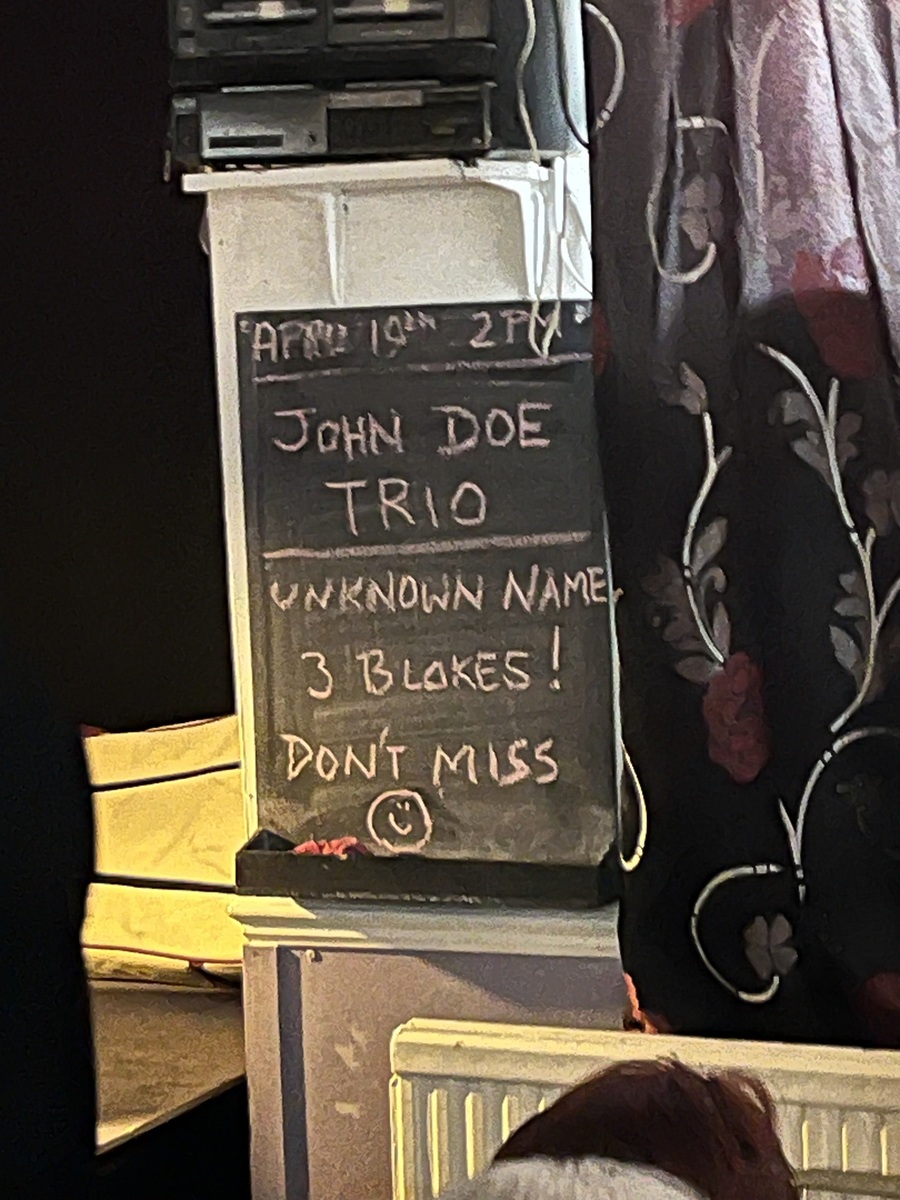 "APRIL 19th 2PM"
JOHN DOE
TRIO
UNKNOWN NAME
3 BLOKES!
DON'T MISS